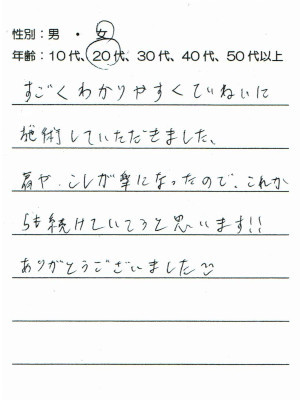 性別:男 ・ 女
年齢:10代、20代、30代、40代、50代以上
すごくわかりやすくていねいに
施術していただきました、
肩や、こしが楽になったので、これか
らも続けていこうと思います!!
ありがとうございました